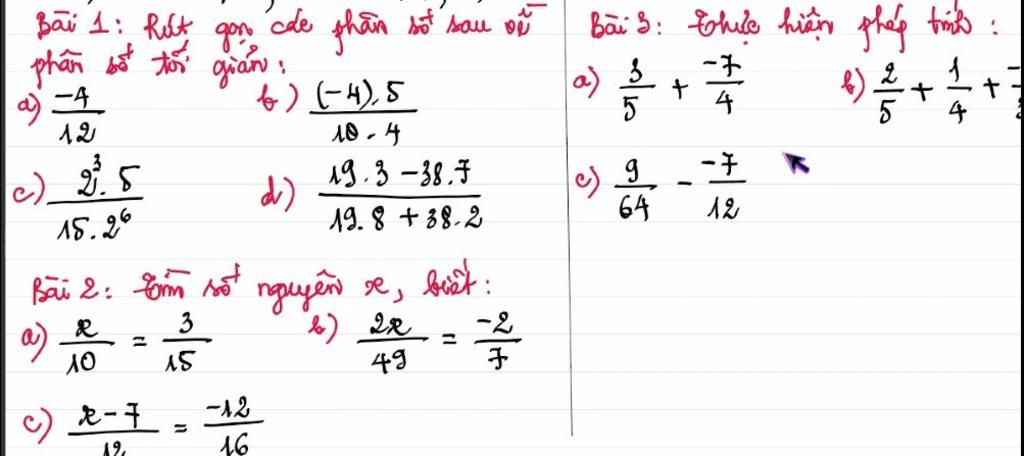 Bài 1: Rút gọn các phân số sau về
phân số tối giản:
a) -4/12 b) (-4).5/10.4
c) 2³.5/15.2⁶ d) 19.3-38.7/19.8+38.2
Bài 2: Tìm số nguyên x, biết:
a) x/10 = 3/15 b) 2x/49 = -2/7
c) x-7/12 = -12/16
Bài 3: Thực hiện phép tính:
a) 3/5 + -7/4 b) 2/5 + 1/4 +
c) 9/64 - -7/12